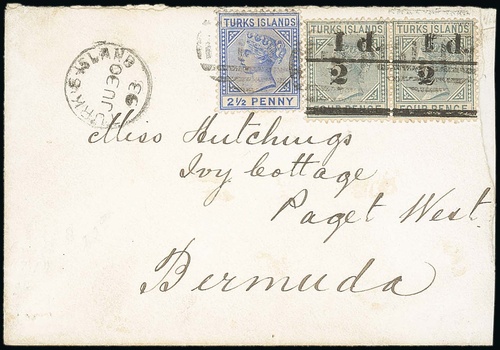 TURKS ISLANDS
2½ PENNY
TURKS ISLANDS
1/2 d.
FOUR PENCE
TURKS ISLANDS
1/2 d.
FOUR PENCE
TURK'S ISLAND
JU 30
93
Miss Hutchings
Ivy Cottage
Paget West
Bermuda